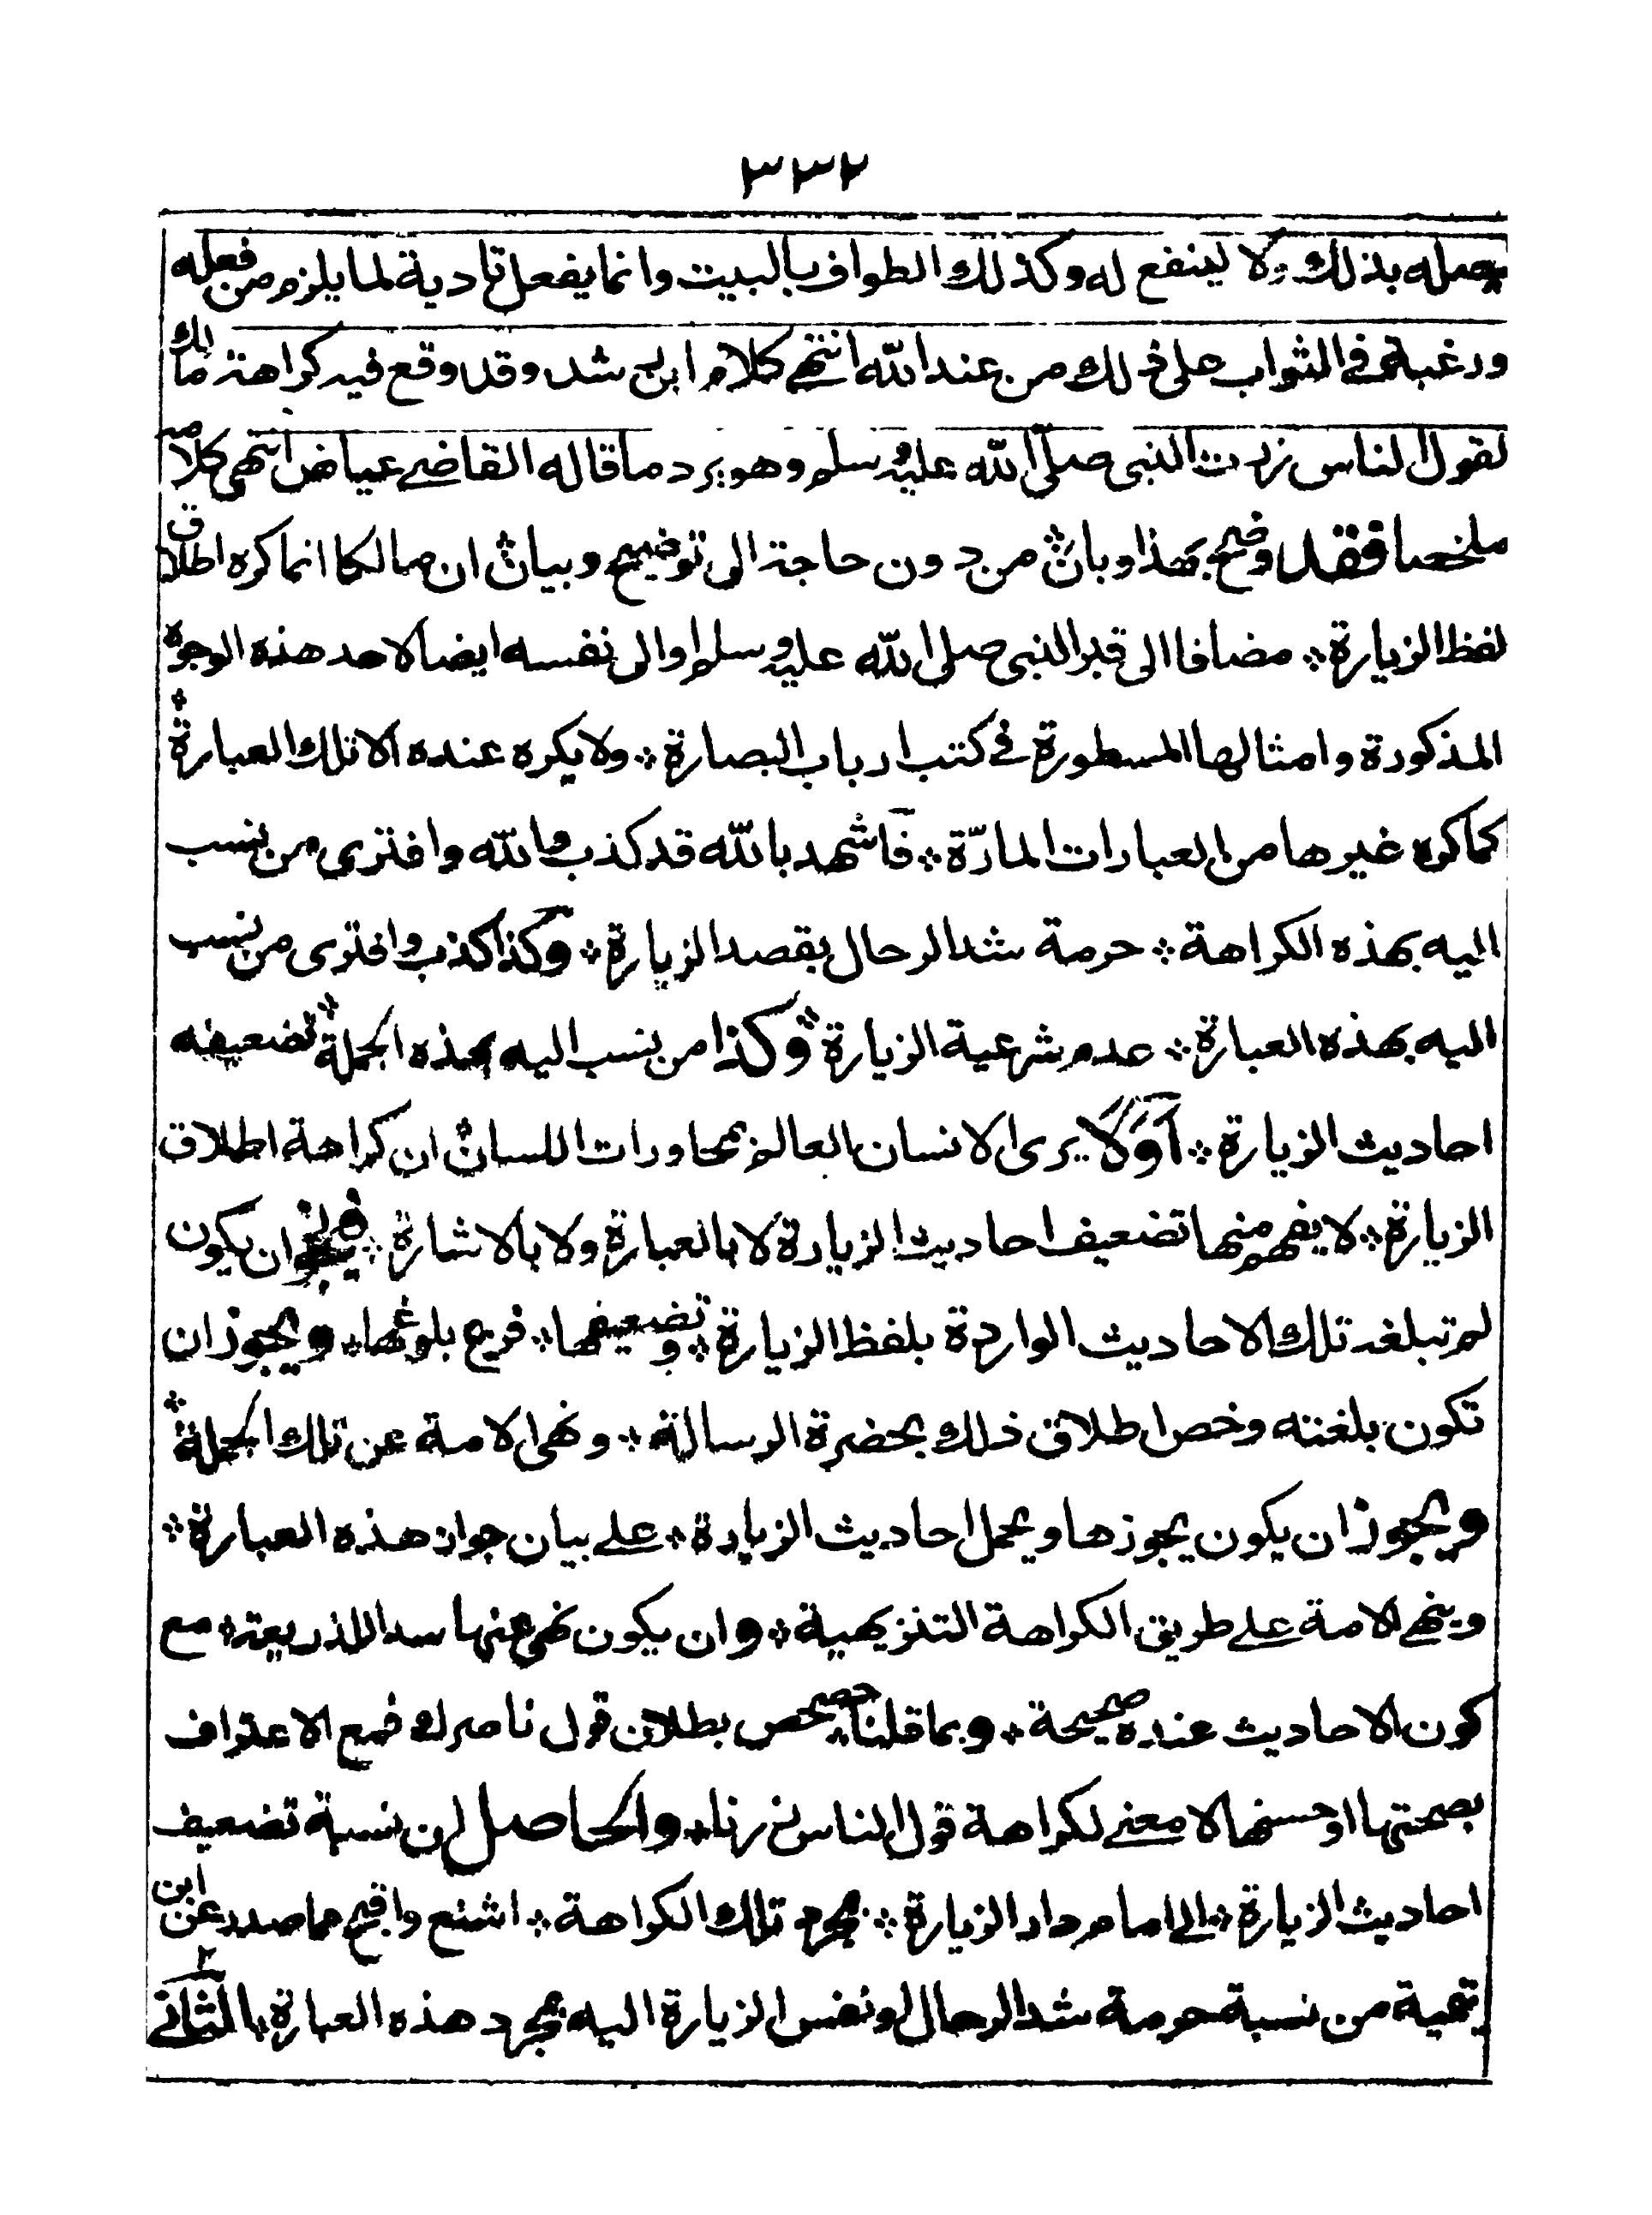 ٣٣٢
يصله بذلك ولا لينفع له وكذلك الطواف بالبيت وانما يفعل تادية لما يلزم من فعله
ورغبة في الثواب على ذلك من عند الله انتهى كلام ابن رشد وقد وقع فيه كراهة مالك
لقول الناس زرت النبي صلى الله عليه وسلم وهو يرد ما قاله القاضي عياض انتهى كلامه
ملخصا فقد وضح بهذا وبان٭ من دون حاجة الى توضيح وبيان٭ ان مالكا انما كره اطلاق
لفظ الزيارة٭ مضافا الى قبر النبي صلى الله عليه وسلم او الى نفسه ايضا لاحد هذه الوجوه
المذكورة وامثالها المسطورة في كتب ارباب البصارة٭ ولا يكره عنده الا تلك العبارة٭
كما كره غيرها من العبارات المارّة٭ فاشهد بالله قد كذب والله وافترى من نسب
اليه بهذه الكراهة٭ حرمة شد الرحال بقصد الزيارة٭ وكذا كذب وافترى من نسب
اليه بهذه العبارة٭ عدم شرعية الزيارة٭ وكذا من ينسب اليه بهذه الجملة٭ تضعيفه
احاديث الزيارة٭ اَوَلَا يرى الانسان العالم بمحاورات اللسان٭ ان كراهة اطلاق
الزيارة٭ لا يفهم منها تضعيف احاديث الزيارة لا بالعبارة ولا بالاشارة٭ فيجوز ان يكون
لم تبلغه تلك الاحاديث الواردة بلفظ الزيارة٭ وتضعيفها٭ فرع بلوغها٭ ويجوز ان
تكون بلغته وخص اطلاق ذلك بحضرة الرسالة٭ ونهى الامة عن تلك الجملة٭
ويجوز ان يكون يجوزها ويحمل احاديث الزيارة٭ على بيان جواز هذه العبارة٭
وينهى الامة على طريق الكراهة التنزيهية٭ وان يكون نهى عنها سدا للذريعة٭ مع
كون الاحاديث عنده صحيحة٭ وبما قلنا٭ حصحص بطلان قول ناصرك فمع الاعتراف
بصحتها او حسنها لا معنى لكراهة قول الناس زرنا٭ والحاصل ان نسبة تضعيف
احاديث الزيارة٭ الى امام دار الزيارة٭ بمجرد تلك الكراهة٭ اشنع واقبح مما صدر عن ابن
تيمية من نسبة حرمة شد الرحال او نفس الزيارة اليه بمجرد هذه العبارة٭ الثاني